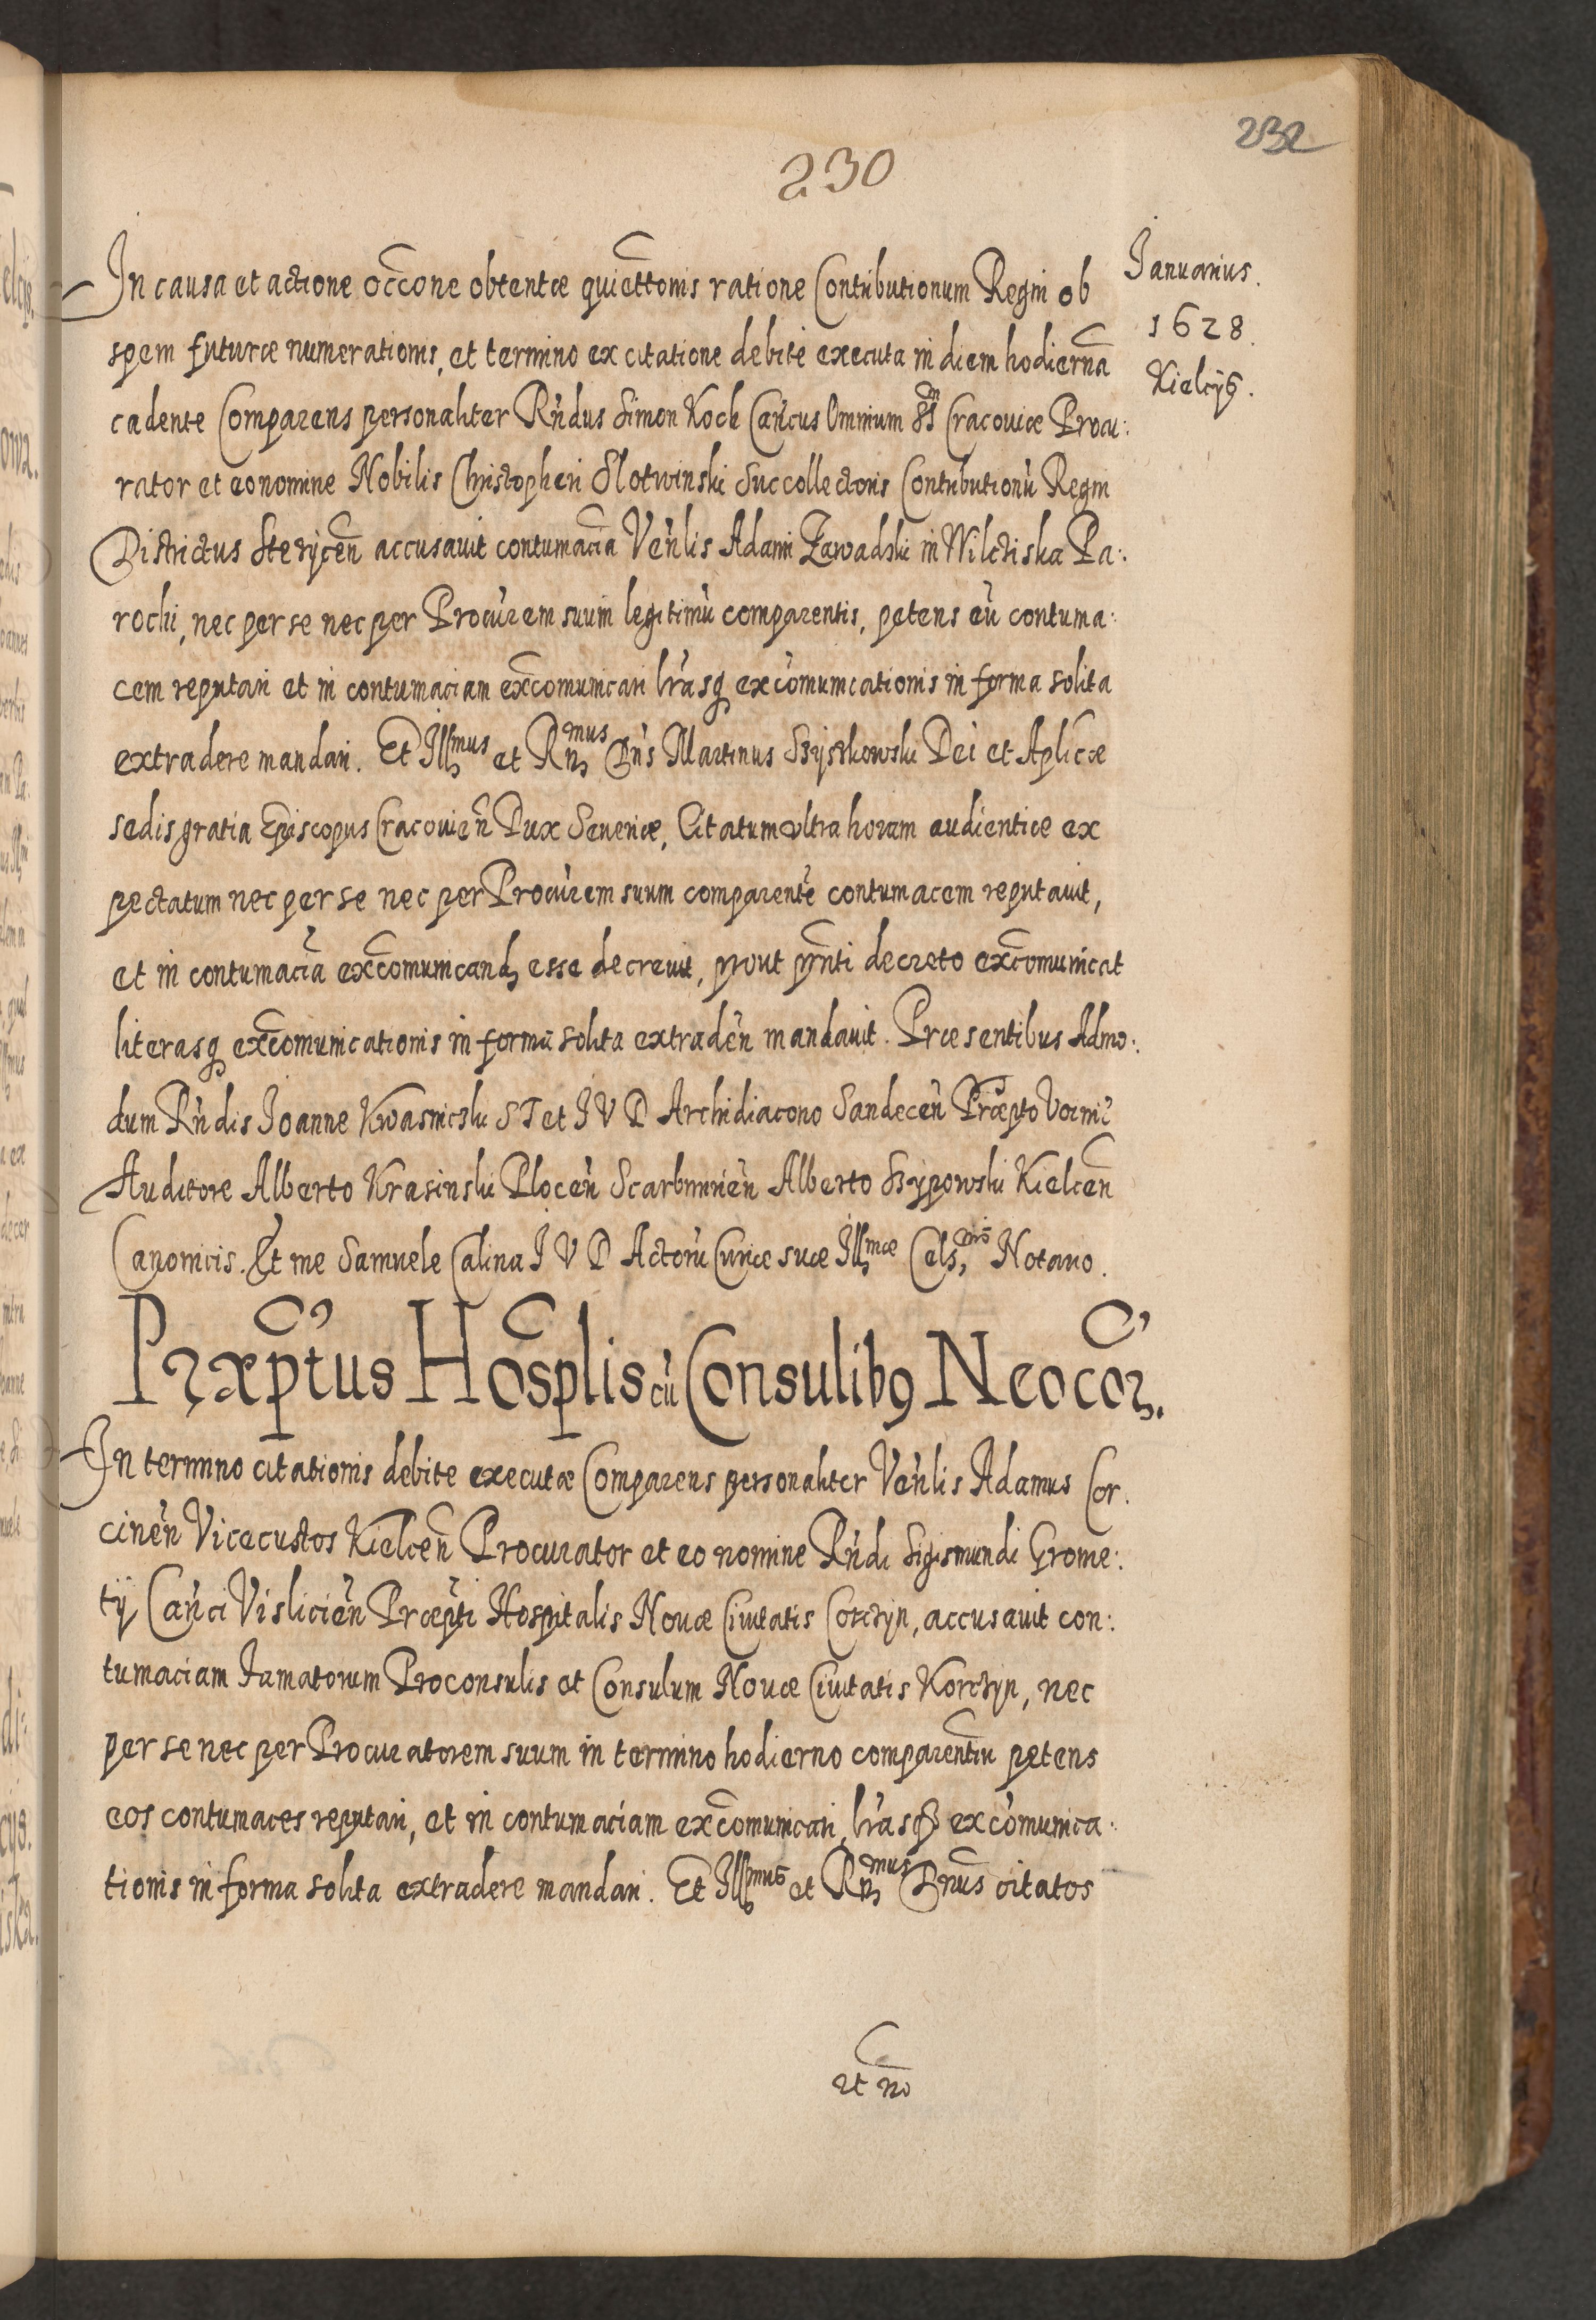 232
230
Januarius.
1628.
Kielcijs.
In causa et actione occõne obtentæ quiettõnis ratione Contributionum Regni ob
spem futuræ numerationis, et termino ex citatione debite executa in diem hodiernã
cadente Comparens personaliter Rñdus Simon Koch Cañcus Omnium SS Cracoviæ Procu:
rator et eo nomine Nobilis Christopheri Slotwinski Succollectoris Contributionũ Regni
Districtus Stezycen̄ accusavit contumaciã Veñlis Adami Zawadzki in Wilcziska Pa:
rochi, nec per se nec per Procũrem suum legitimũ comparentis, petens eũ contuma:
cem reputari et in contumaciam excõmunicari lrãsq excõmunicationis in forma solita
extradere mandari. Et Illmus et Rnmus Dñs Martinus Szyszkowski Dei et Aplicæ
sedis gratia Episcopus Cracovien̄ Dux Severiæ, Citatum ultra horam audientiæ ex
pectatum nec per se nec per Procũrem suum comparentẽ contumacem reputavit,
et in contumaciã excõmunicand esse decrevit, prout pñti decreto excõmunicat
literasq excõmunicationis in forma solita extraden̄ mandavit. Præsentibus Admo:
dum Rñdis Joanne Kwasniczki S T et J V D Archidiacono Sandecen̄ Præpto
Auditore Alberto Krasinski Plocen̄ Scarbimirien̄ Alberto Szypowski Kielcen̄
Canonicis. Et me Samuele Calina J V D Actorũ Curiæ suæ Illmæ Celsnis Notario.
Præptus Hosplis cũ Consulibq Neocor.
In termino citationis debite executæ Comparens personaliter Veñlis Adamus Cor.
cinen̄ Vicecustos Kielcen̄ Procurator et eo nomine Rñdi Sigismundi Grome:
tij Cañci Vislicien̄ Præpti Hospitalis Novæ Civitatis Corczyn, accusavit con:
tumaciam Famatorum Proconsulis et Consulum Novæ Civitatis Korczyn, nec
per se nec per Procuratorem suum in termino hodierno comparentiũ petens
eos contumaces reputari, et in contumaciam excõmunicari, lrãsq excõmunica:
tionis in forma solita extradere mandari. Et Illmus et Rnmus Dñus citatos
et nõ